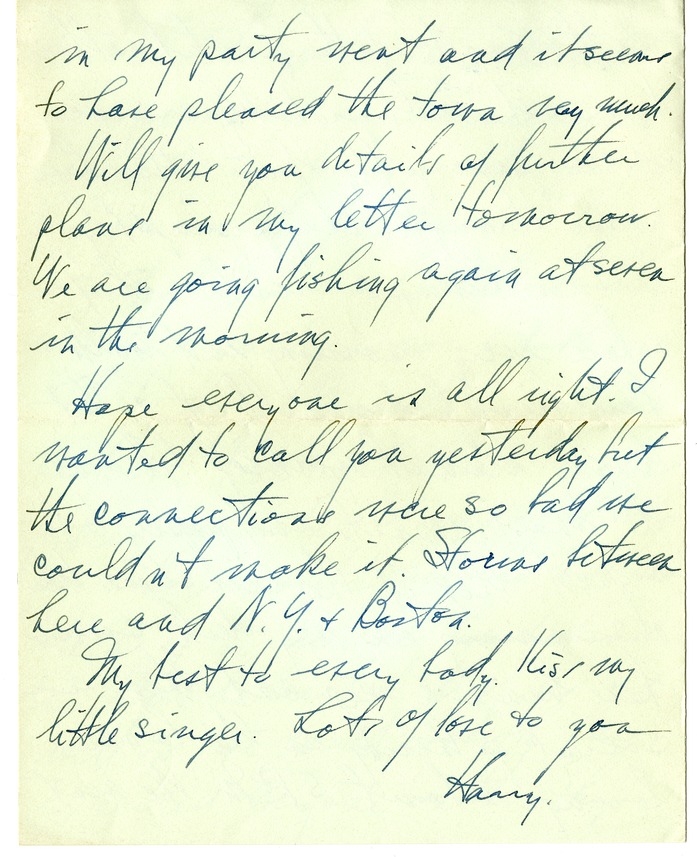 in my party went and it seems
to have pleased the town very much.
Will give you details of further
plans in my letter tomorrow.
We are going fishing again at seven
in the morning.
Hope everyone is all right. I
wanted to call you yesterday but
the connections were so bad we
couldn't make it. Storms between
here and N.Y. & Boston.
My best to every body. Kiss my
little singer. Lots of love to you
Harry.